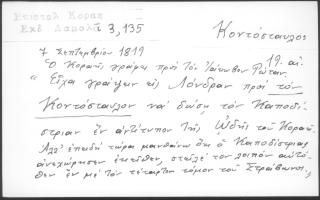 Επιστολ Κοραη
Εκδ Δαμαλα 3,135
Κοντόσταυλος
7 Σεπτεμβρίου 1819
19. αἰ.
Ὁ Κοραῆς γράφει πρός τόν Ἰάκωβον Ρώταν
"Εἶχα γράψειν εἰς Λόνδραν πρός τόν
Κοντόσταυλον νά δώσῃ τόν Καποδί-
στριαν ἕν ἀντίτυπον τῆς Ὠδῆς τοῦ Κοραῆ.
Ἀλλ' ἐπειδή τώρα μανθάνω ὅτι ὁ Καποδίστριας
ἀνεχώρησεν ἐκεῖθεν, στεῖλέ τον λοιπόν αὐτό-
θεν ἕν μέ τόν τέταρτον τόμον τοῦ Στράβωνος,